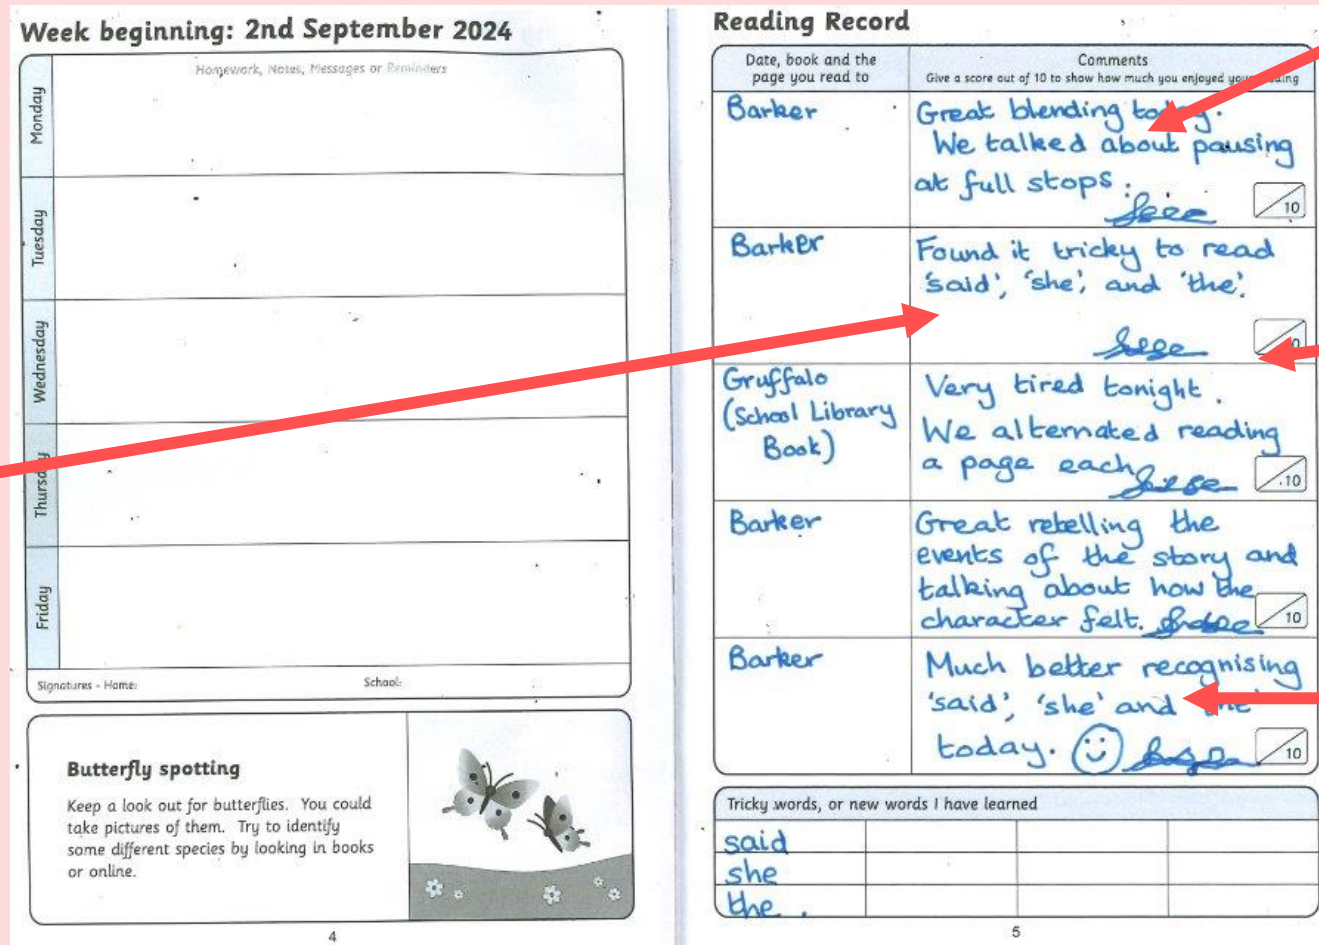 Week beginning: 2nd September 2024
Homework, Notes, Messages or Reminders
Monday
Tuesday
Wednesday
Thursday
Friday
Signatures - Home:
School:
Butterfly spotting
Keep a look out for butterflies. You could
take pictures of them. Try to identify
some different species by looking in books
or online.
4
Reading Record
Date, book and the
page you read to
Comments
Give a score out of 10 to show how much you enjoyed your reading
Barker
Great blending today.
We talked about pausing
at full stops.
10
Barker
Found it tricky to read
'said', 'she', and 'the'.
Gruffalo
(School Library
Book)
Very tired tonight.
We alternated reading
a page each
10
Barker
Great retelling the
events of the story and
talking about how the
character felt.
10
Barker
Much better recognising
'said', 'she' and 'the'
today.
10
Tricky words, or new words I have learned
said
she
the.
5